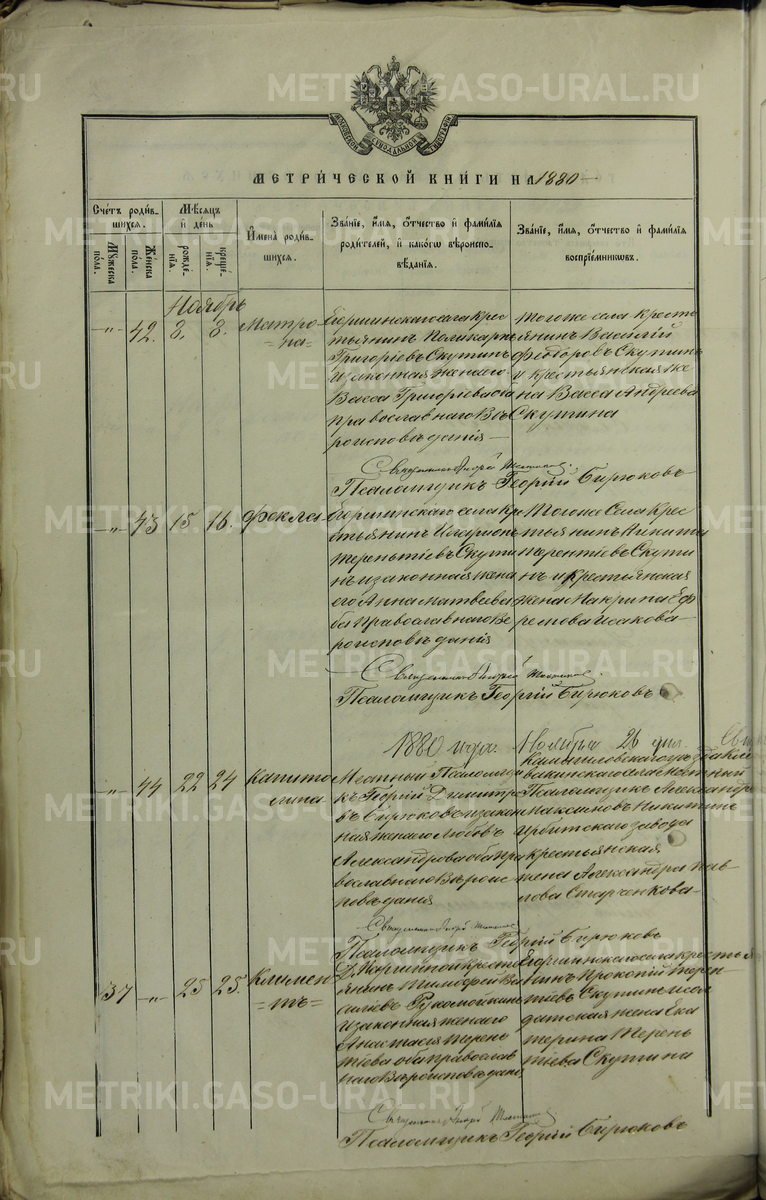 МЕТРИ́ЧЕСКОЙ КНИ́ГИ НА 1880
Сче́тъ роди́в-
шихся.
Мѣ́сяцъ
и҆ де́нь
Мꙋ́жеска
пола.
Же́нска
пола.
рожде-
нїѧ.
креще-
нїѧ.
И҆мена̀ роди́в-
шихся.
Зва́нїе, и҆́мя, ѻ҆́тчество и҆ фами́лїя
роди́телей, и҆ како́гѡ вѣроиспо-
вѣ́данїя.
Зва́нїе, и҆́мя, ѻ҆́тчество и҆ фами́лїя
воспрїе́мникѡвъ.
Ноябрь
-"- 42. 8. 8. Матро-
=на=
стьянинъ Поликарпъ
Григорьевъ Скутинъ
и законная жена его
Васса Григорьева оба
православнаго вѣ
роисповѣданія
Тогоже села кресть
янинъ Василій
Ѳедоровъ Скутинъ
и крестьянская же
на Васса Андреева
Скутина
Священникъ Андрей
Псаломщикъ Георгій Бирюковъ
-"- 43 15 16. Ѳекла
стьянинъ Иларіонъ
Терентьевъ Скути
нъ и законная жена
его Анна Матвеева
оба православнаго вѣ
роисповѣданія
Тогоже села крес
тьянинъ Никита
Терентьевъ Скути
нъ и крестьянская
жена Макрина Еф
ремова Исакова
Священникъ Андрей
Псаломщикъ Георгій Бирюковъ
1880 года Ноября 26 дня.
-"- 44 22 24 Капито
лина
Местный Псаломщи
къ Георгій Димитріе
въ Бирюковъ и закон
ная жена его Любовь
Александрова оба пра
вославнаго вѣроис
повѣданія
Камышловскаго уѣзда
села местный
Псаломщикъ Александръ
Максимовъ Никитинъ
Ирбитскаго завода
крестьянская
жена Александра Пав
лова Старченкова
Священникъ Андрей
Псаломщикъ Георгій Бирюковъ
37 -"- 25 25. Климен
=тъ=
янинъ Тимофей Ва
сильевъ Рукомойкинъ
и законная жена его
Анастасія Терен
тьева оба православ
наго вѣроисповѣдан
села крестья
нинъ Прокопій Терен
тьевъ Скутинъ и сол
датская жена Ека
терина Терен
тьева Скутина
Священникъ Андрей
Псаломщикъ Георгій Бирюковъ
METRIKI.GASO-URAL.RU